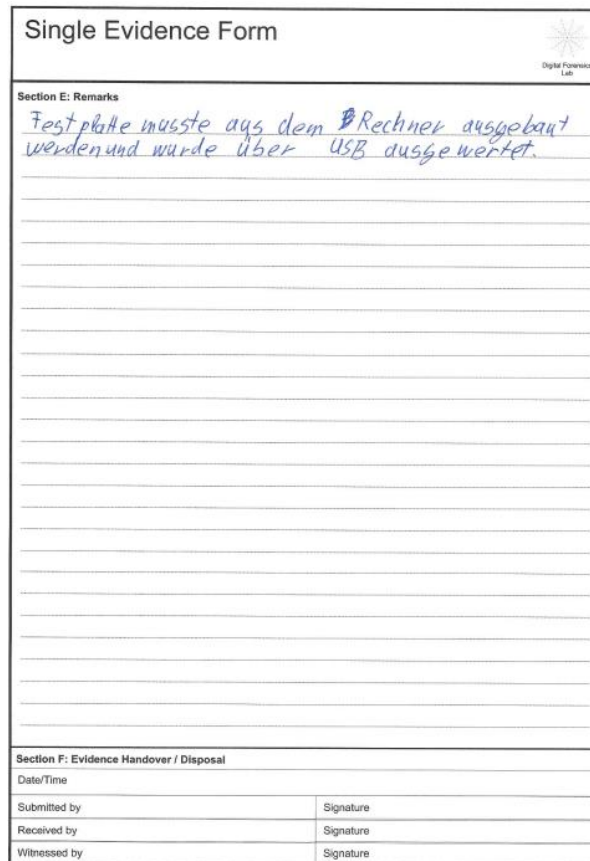 Single Evidence Form
Digital Forensics
Lab
Section E: Remarks
Festplatte musste aus dem Rechner ausgebaut
werden und wurde über USB ausgewertet.
Section F: Evidence Handover / Disposal
Date/Time
Submitted by Signature
Received by Signature
Witnessed by Signature